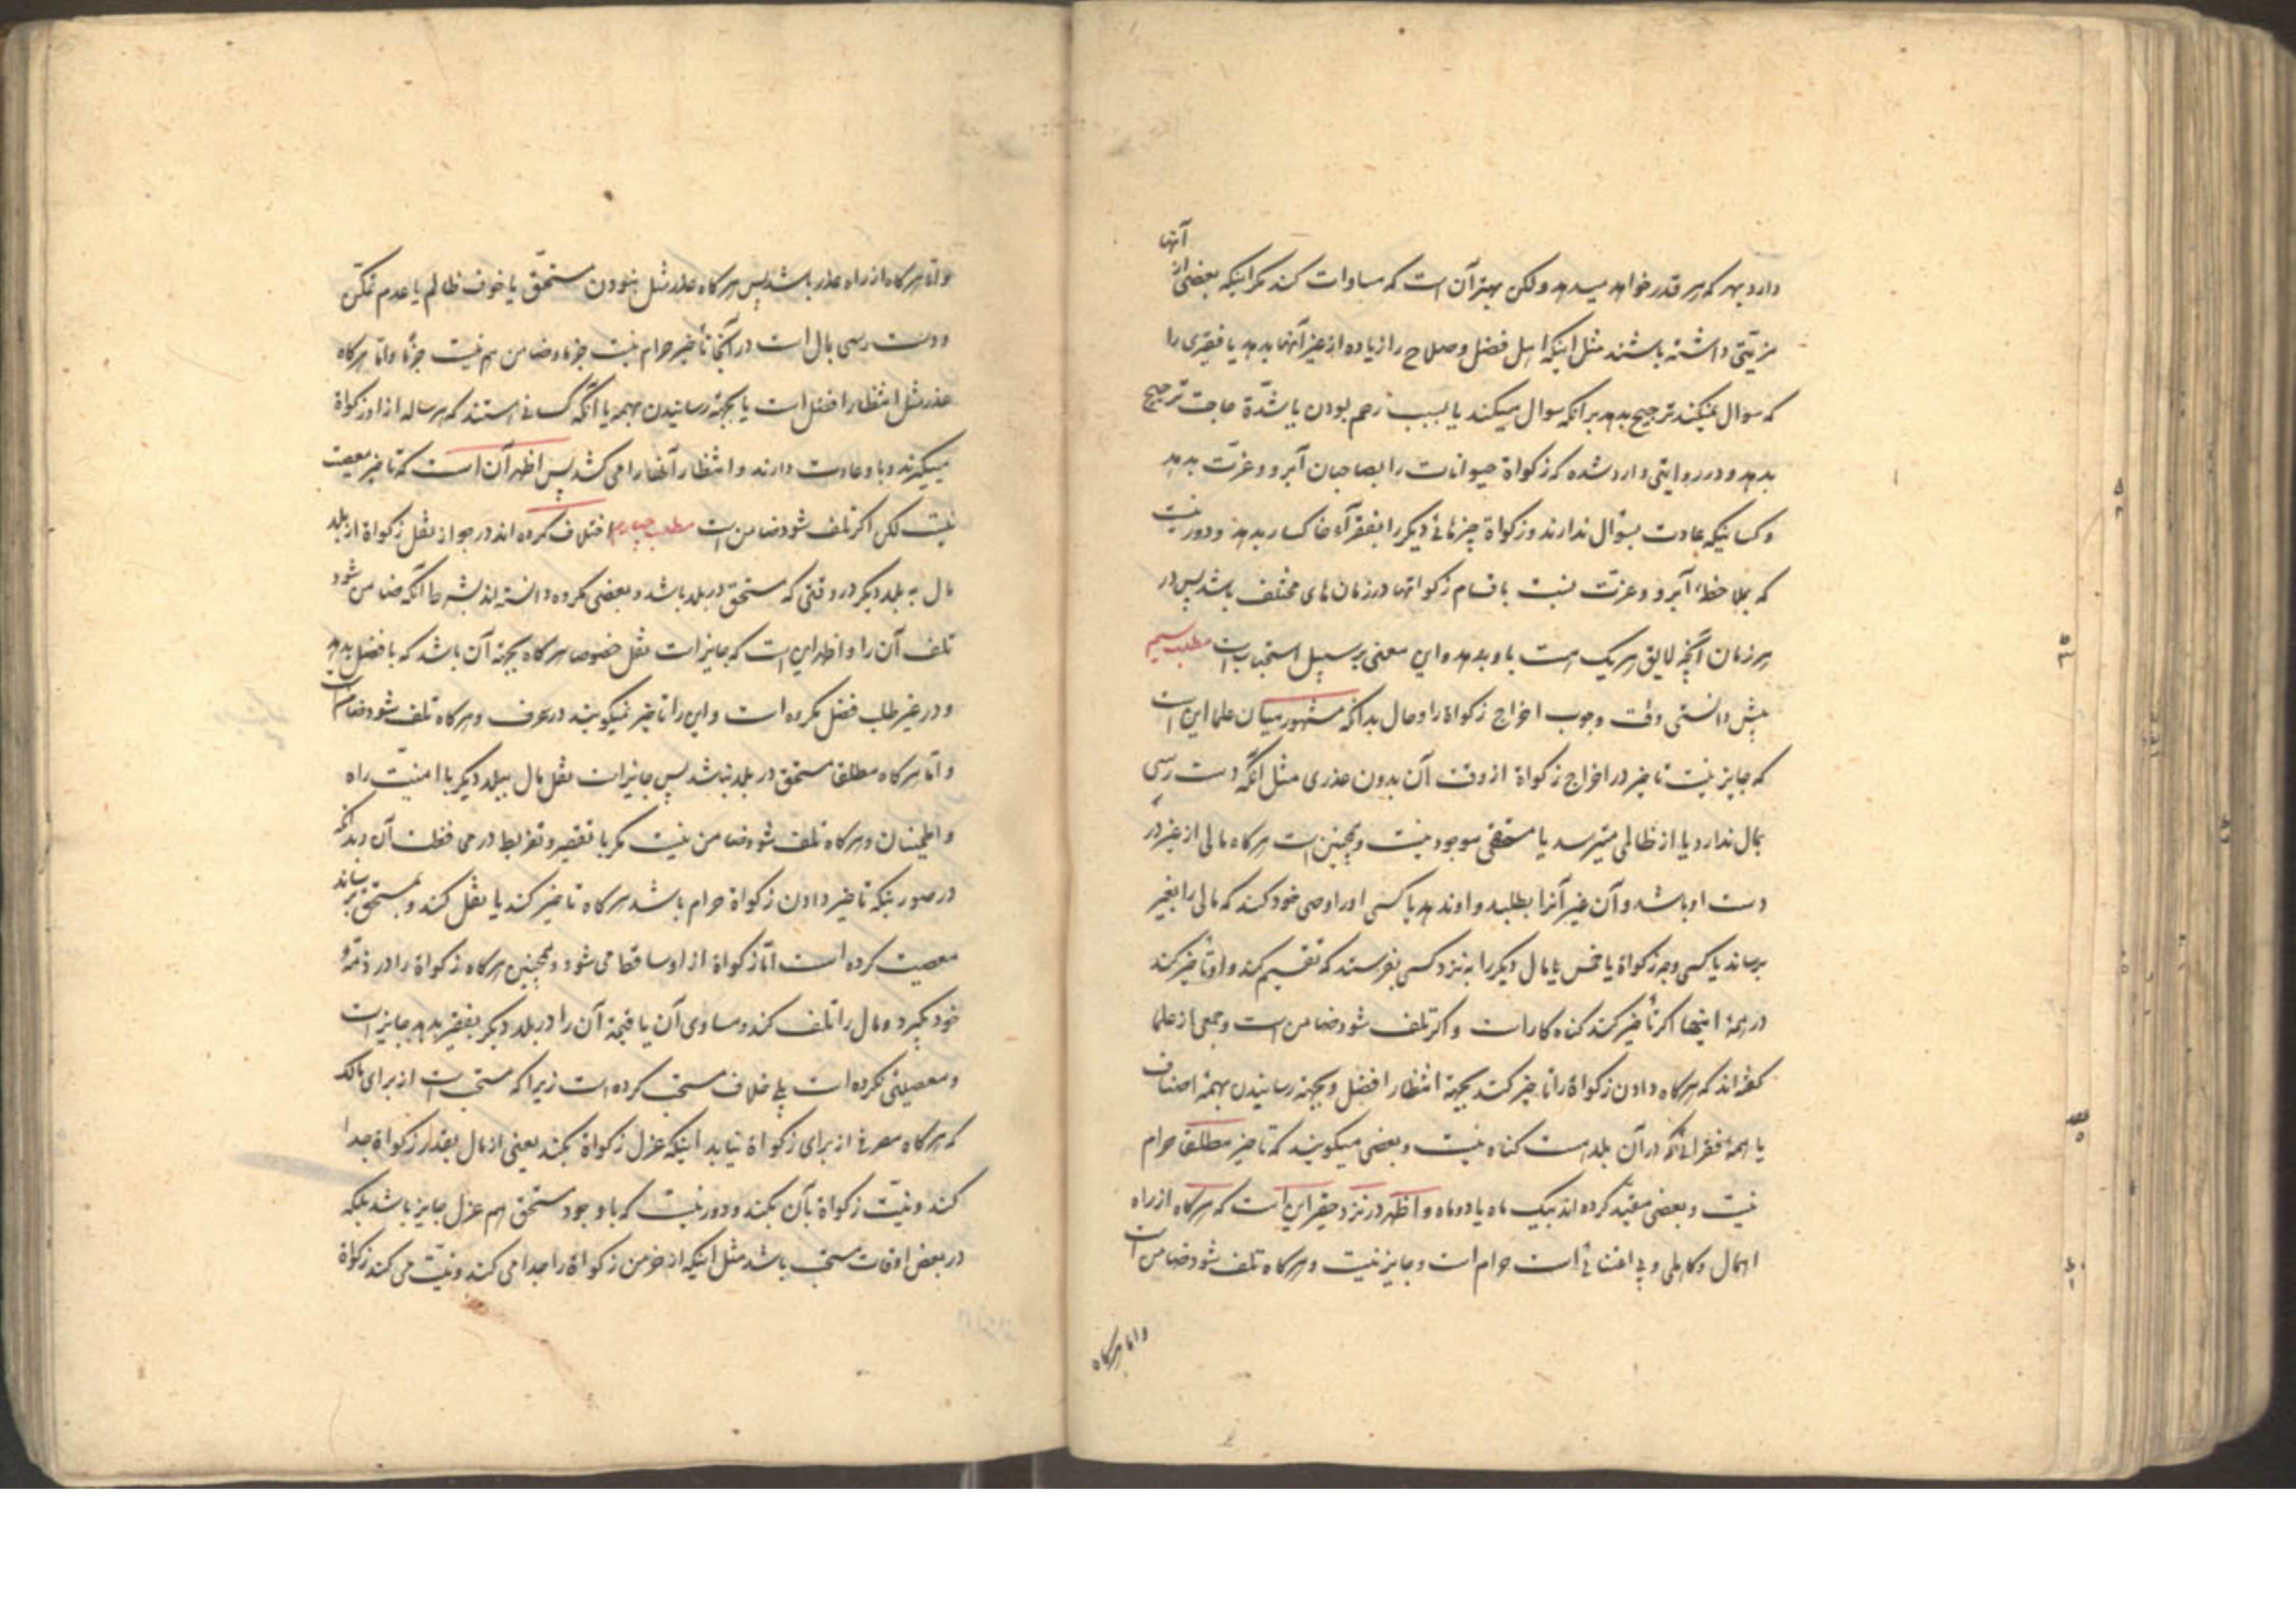 دارد بهر که هر قدر خواهد میدهد ولکن بهتر آن است که مساوات کند مکر اینکه بعضی از آنها
مزیتی داشته باشند مثل اینکه اهل فضل و صلاح را زیاده از غیر آنها بدهد یا فقیری را
که سوال نمیکند ترجیح بدهد بر آنکه سوال میکند یا بسبب رحم بودن یا شدّة حاجت ترجیح
بدهد و در روایتی وارد شده که زکواة حیوانات را بصاحبان آبرو و عزّت بدهد
و کسانیکه عادت بسؤال ندارند و زکواة چیزهائی دیکر را بفقرآء خاکسار بدهد و دور نیست
که بملاحظهٔ آبرو و عزّت نسبت باقسام زکواتها در زمان های مختلف باشد پس در
هر زمان آنچه لایق هر یک است باو بدهد و این معنی بر سبیل استحباب است مطلب سیم
پیش دانستی وقت وجوب اخراج زکواة را و حال بدانکه مشهور میان علما این است
که جایز نیست تاخیر در اخراج زکواة از وقت آن بدون عذری مثل آنکه دست رسی
بمال ندارد یا از ظالمی میترسد یا مستحقی موجود نیست و همچنین است هرکاه مالی از غیر در
دست او باشد و آن غیر آنرا بطلبد و او ندهد یا کسی او را وصی خود کند که مالی را بغیر
برساند یا کسی وجه زکواة یا خمس یا مال دیکر را به نزد کسی بفرستد که تقسیم کند و او تأخیر کند
در همهٔ اینها اکر تأخیر کند کناه کار است و اکر تلف شود ضامن است و جمعی از علما
کفته‌اند که هرکاه دادن زکواة را تاخیر کند بجهة انتظار افضل و بجهة رسانیدن بهمهٔ اصناف
یا همهٔ فقرائی که در آن بلد است کناه نیست و بعضی میکویند که تاخیر مطلقا حرام
نیست و بعضی مقیّد کرده اند بیک ماه یا دو ماه و اظهر در نزد حقیر این است که هرکاه از راه
اهمال و کاهلی و بی اعتنائی است حرام است و جایز نیست و هرکاه تلف شود ضامن است
و اما هرکاه
و امّا هرکاه از راه عذر باشد پس هرکاه عذر مثل نبودن مستحّق یا خوف ظالم یا عدم تمکّن
و دست رسی بمال است در آنجا تأخیر حرام نیست جزما و ضامن هم نیست جزمًا و امّا هرکاه
عذر مثل انتظار افضل است یا بجهة رسانیدن بهمه یا آنکه کسانی هستند که هر ساله از او زکواة
میکیرند و با و عادت دارند و انتظار آنها را می کشد پس اظهر آن است که تاخیر معصیت
نیست لکن اکر تلف شود ضامن است مطلب چهارم اختلاف کرده اند در جواز نقل زکواة از بلد
مال به بلد دیکر در وقتی که مستحق در بلد باشد و بعضی مکروه دانسته‌اند بشرط آنکه ضامن شود
تلف آن را و اظهر این است که جایز است نقل خصوصا هرکاه بجهة آن باشد که بافضل بدهد
و در غیر طلب فضل مکروه است و این را تاخیر نمیکویند در عرف و هرکاه تلف شود ضامن است
و امّا هرکاه مطلقا مستحق در بلد نباشد پس جایز است نقل مال ببلد دیکر با امنیّت راه
و اطمینان و هرکاه تلف شود ضامن نیست مکر با تقصیر و تفریط در محافظت آن و بدانکه
در صورتیکه تاخیر دادن زکواة حرام باشد هرکاه تاخیر کند یا نقل کند و بمستحق برساند
معصیت کرده است امّا زکواة از او ساقط می شود و همچنین هرکاه زکواة را در ذمّهٔ
خود بکیرد و مال را تلف کند و مساوی آن یا قیمة آن را در بلد دیکر بفقیر بدهد جایز است
و معصیتی نکرده است بلی خلاف مستحب کرده است زیرا که مستحب است از برای مالک
که هرکاه مصرفی از برای زکواة نیابد اینکه عزل زکواة بکند یعنی از مال بقدر زکواة جدا
کند و نیّت زکواة بآن بکند و دور نیست که با وجود مستحق هم عزل جایز باشد بلکه
در بعض اوقات مستحب باشد مثل اینکه از خرمن زکواة را جدا می کند و نیّت می کند زکواة